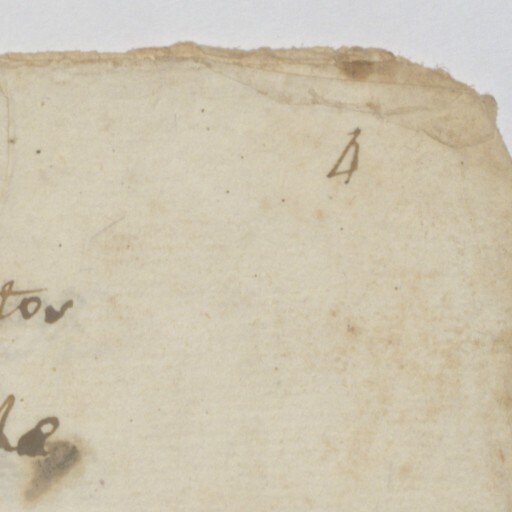 4
tor
he